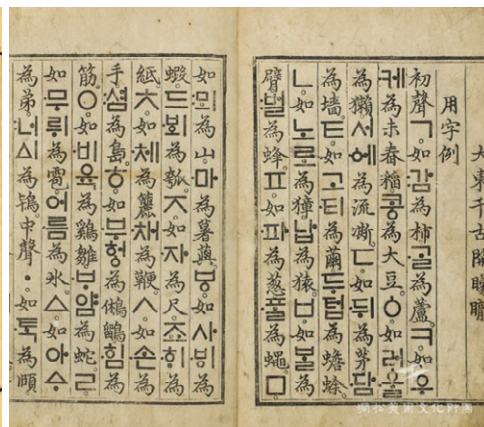 大東千古開矇矓
用字例
初聲ㄱ如감為柿ᄀᆞᆯ為蘆ㅋ如우
케為未舂稻콩為大豆ㆁ如러울
為獺서에為流凘ㄷ如뒤為茅담
為墻ㅌ如고티為繭두텁為蟾蜍
ㄴ如노로為獐납為猿ㅂ如ᄇᆞᆯ為
臂벌為蜂ㅍ如파為葱ᄑᆞᆯ為蠅ㅁ
如뫼為山마為薯藇ㅸ如사ᄫᅵ為
蝦드ᄫᅴ為瓠ㅈ如자為尺죠ᄒᆡ為
紙ㅊ如체為籭채為鞭ㅅ如손為
手셤為島ㅎ如부헝為鵂鶹힘為
筋ㅇ如비육為鷄雛ᄇᆞ얌為蛇ㄹ
如무뤼為雹어름為氷ㅿ如아ᅀᆞ
為弟너ᅀᅵ為鴇中聲ㆍ如ᄐᆞᆨ為頤
澗松美術文化財團